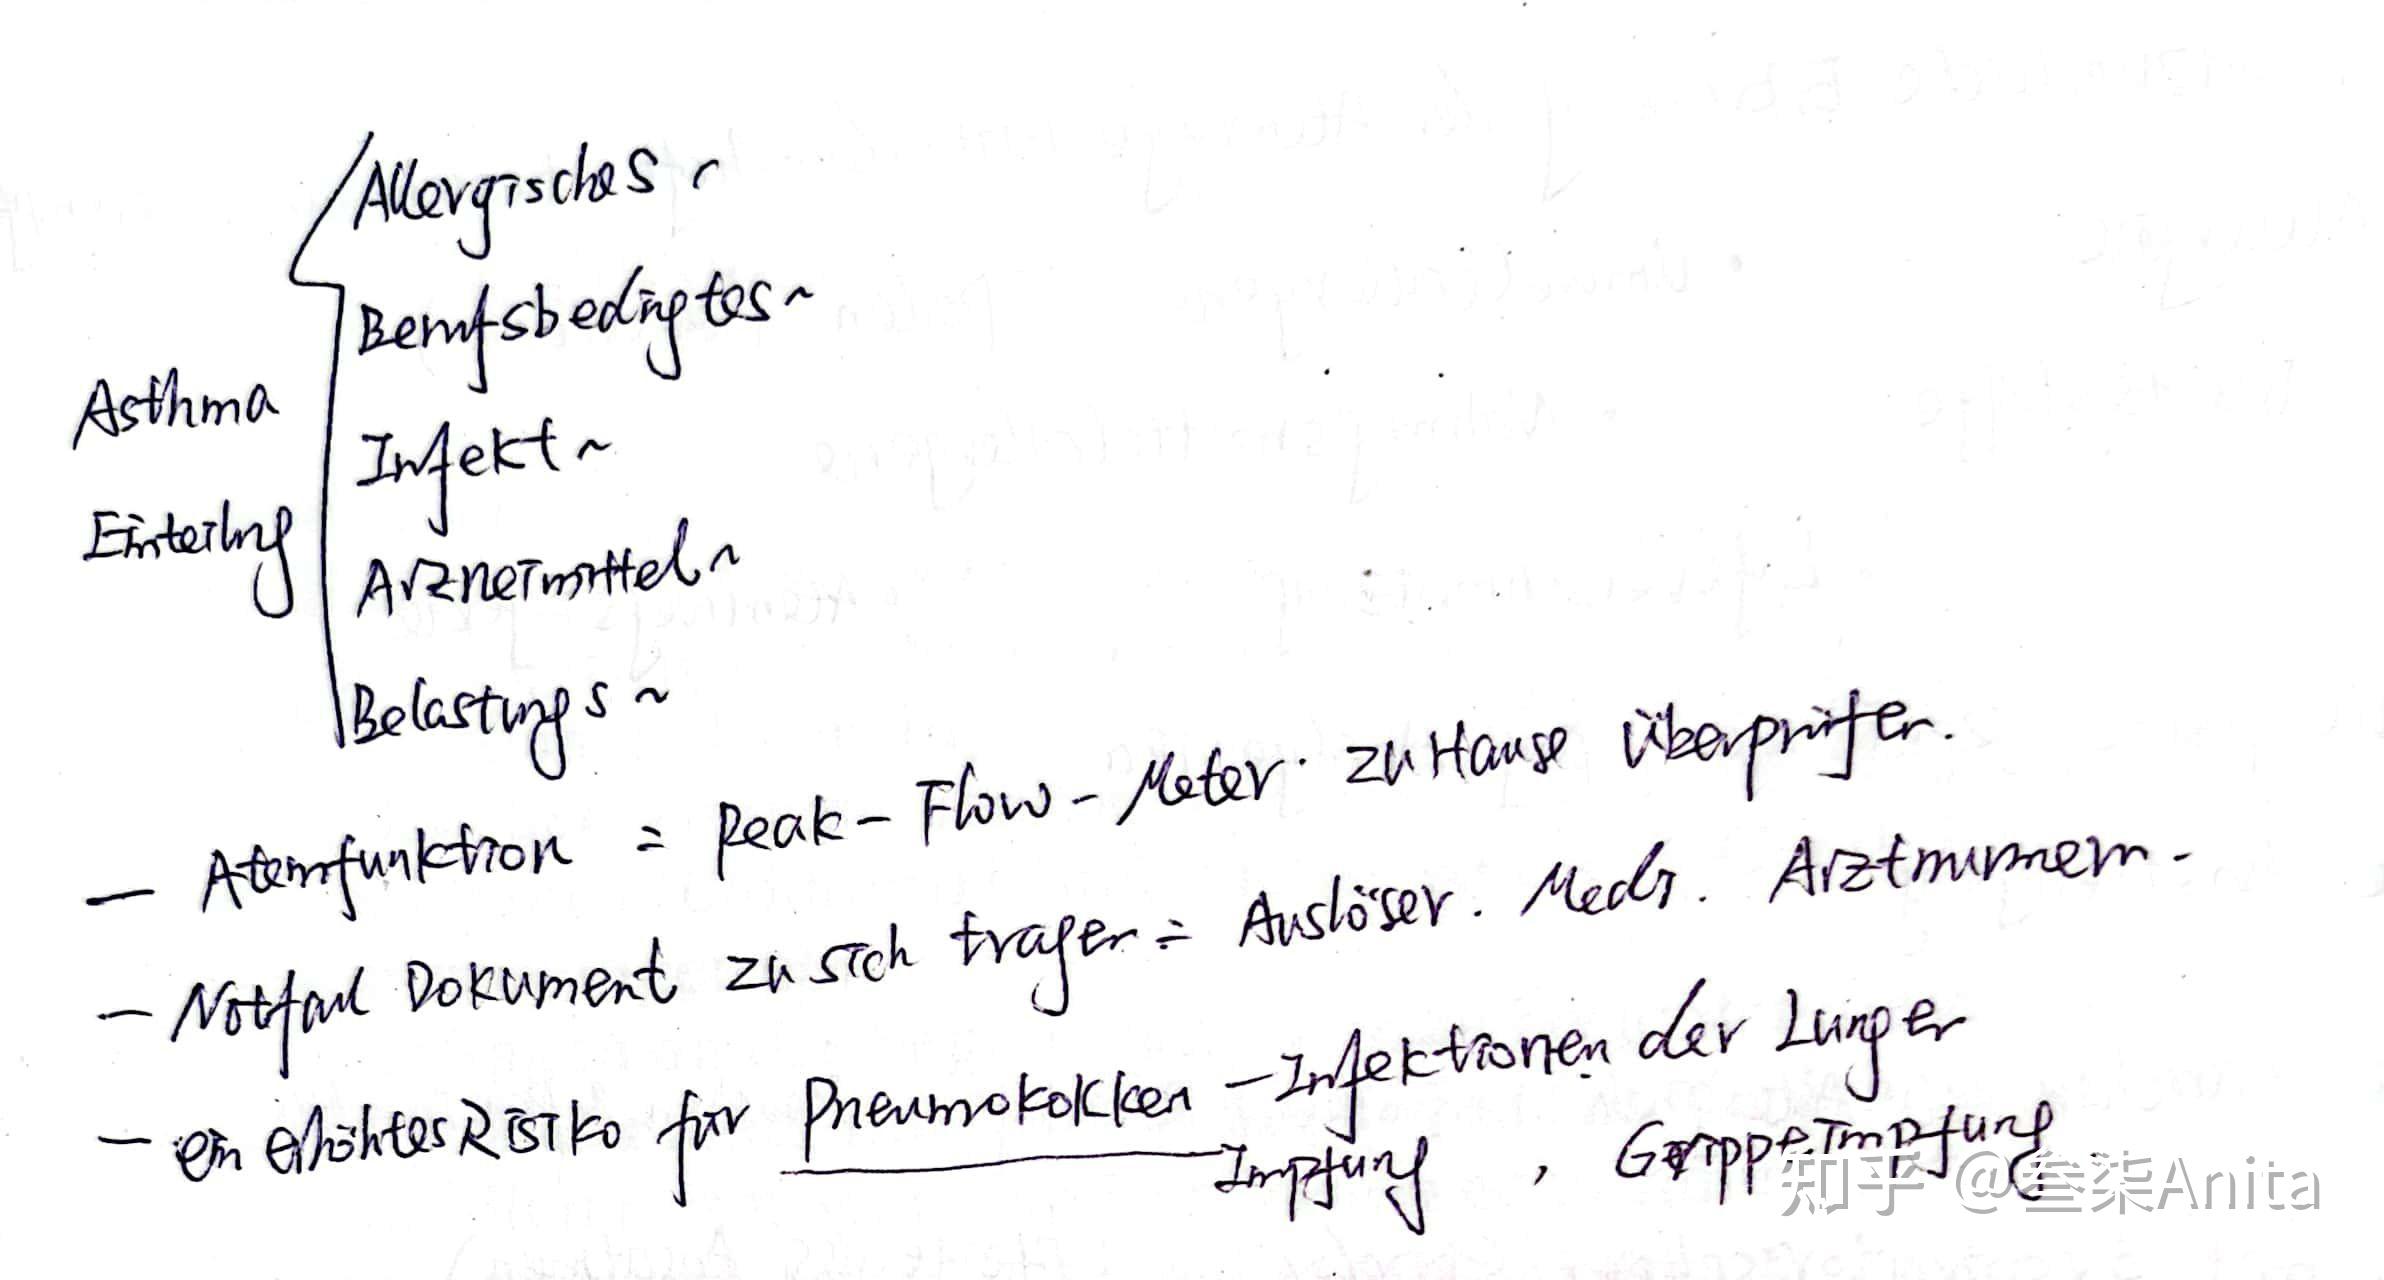 Allergisches ~
Berufsbedingtes ~
Asthma
Infekt ~
Einteilung
Arzneimittel ~
Belastungs ~
— Atemfunktion = Peak-Flow-Meter. zu Hause überprüfen.
— Notfall Dokument zu sich tragen = Auslöser. Medi. Arztnummern.
— ein erhöhtes Risiko für Pneumokokken - Infektionen der Lungen
Impfung, Grippe Impfung.
知乎 @叁柒Anita